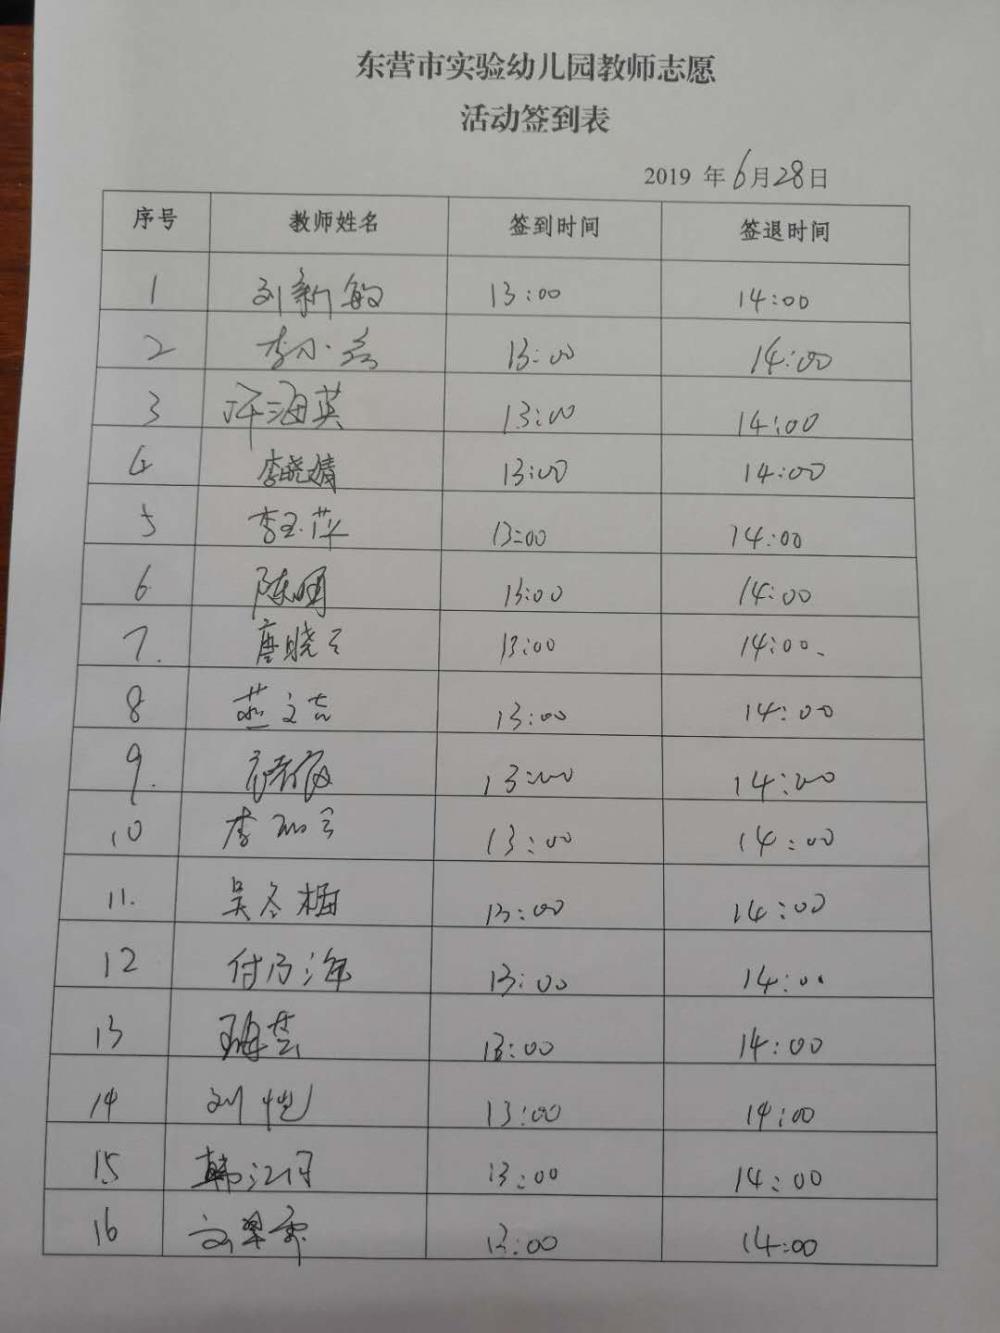 东营市实验幼儿园教师志愿
活动签到表
2019 年6月28日
序号 教师姓名 签到时间 签退时间
1 刘新敏 13:00 14:00
2 李小 13:00 14:00
3 许海英 13:00 14:00
4 李晓婧 13:00 14:00
5 李玉萍 13:00 14:00
6. 陈 13:00 14:00
7. 唐晓 13:00 14:00.
8 燕文吉 13:00 14:00
9. 13:00 14:00
10 李 13:00 14:00
11. 吴冬梅 13:00 14:00
12 付乃海 13:00 14:00
13 13:00 14:00
14 刘恺 13:00 14:00
15 韩江 13:00 14:00
16 刘翠 13:00 14:00